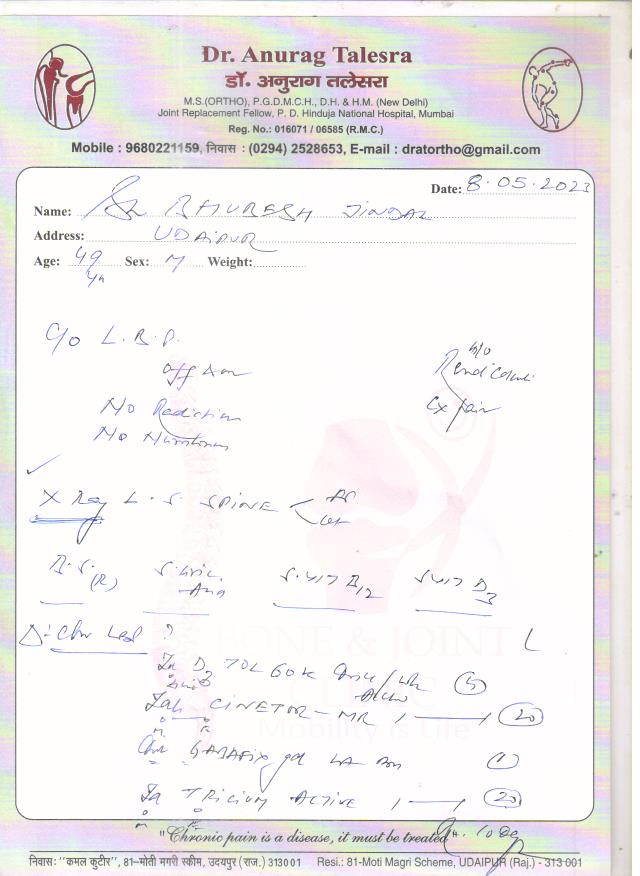 Dr. Anurag Talesra
डॉ. अनुराग तलेसरा
M.S.(ORTHO), P.G.D.M.C.H., D.H. & H.M. (New Delhi)
Joint Replacement Fellow, P. D. Hinduja National Hospital, Mumbai
Reg. No.: 016071 / 06585 (R.M.C.)
Mobile : 9680221159, निवास : (0294) 2528653, E-mail : dratortho@gmail.com
Date: 8.05.2023
Name: BHURESH JINDAL
Address: UDAIPUR
Age: 49 Sex: M Weight:
C/o L.B.P.
off & on
No Radiation
No Numbness
X Ray L.S. SPINE
B.S. (R) S. Uric. Acid S. VIT B12 S VIT D3
BONE & JOINT
CLINIC
Mobility is Life
D3 TOL 60K (5)
Tab CINETOR-MR 1 1 (20)
GABAFIX gel (1)
TRICIUM ACTIVE 1 1 (20)
"Chronic pain is a disease, it must be treated
निवास: "कमल कुटीर", 81-मोती मगरी स्कीम, उदयपुर (राज.) 313001 Resi.: 81-Moti Magri Scheme, UDAIPUR (Raj.) - 313 001